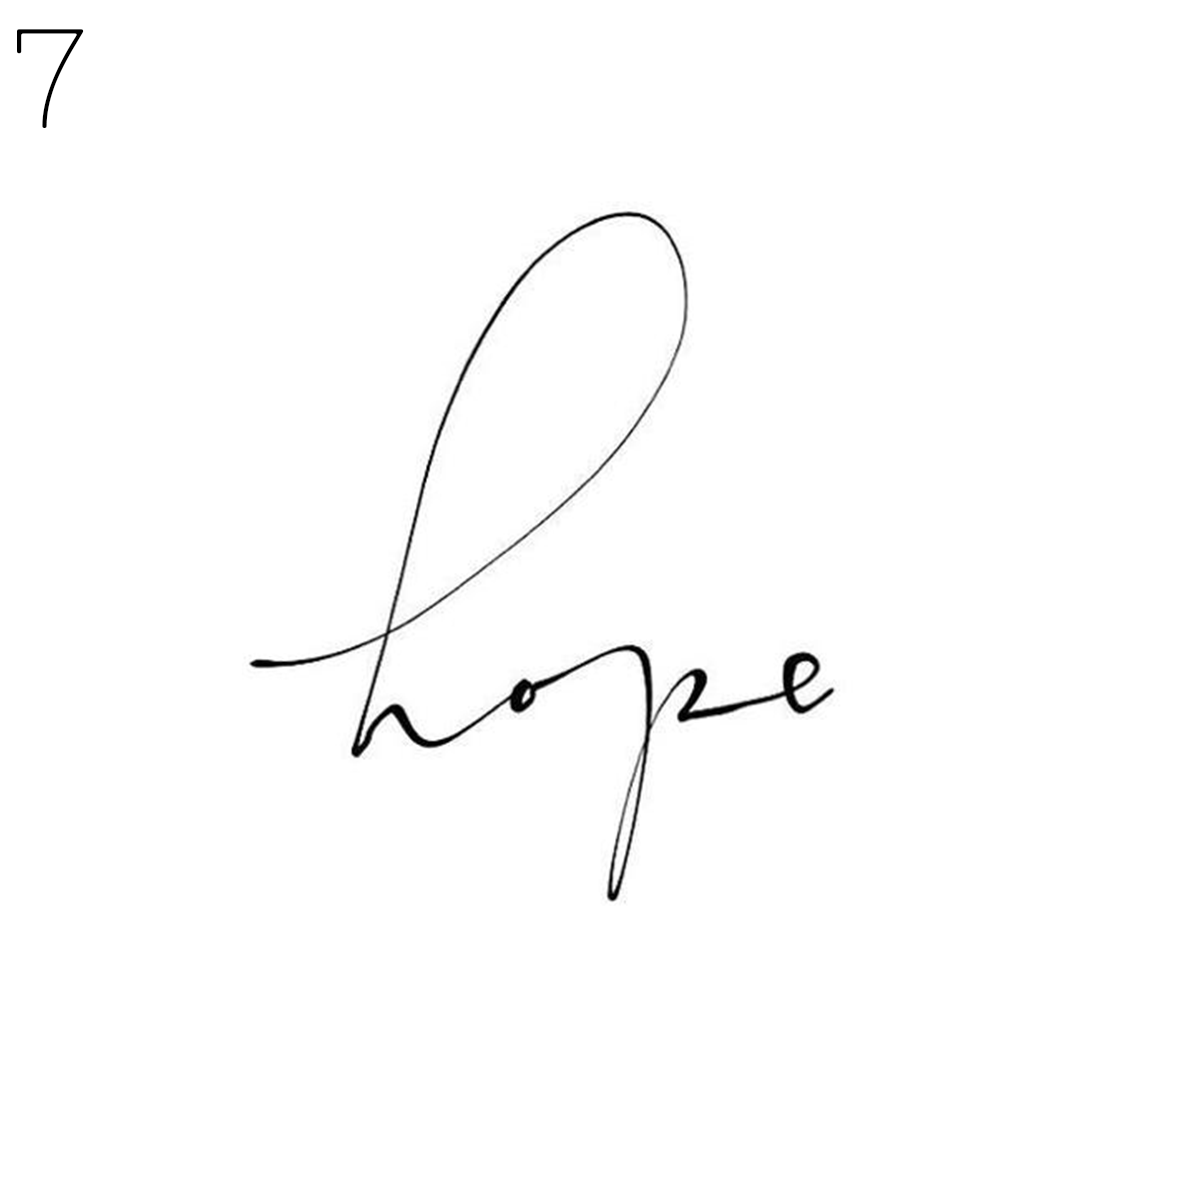 7
hope